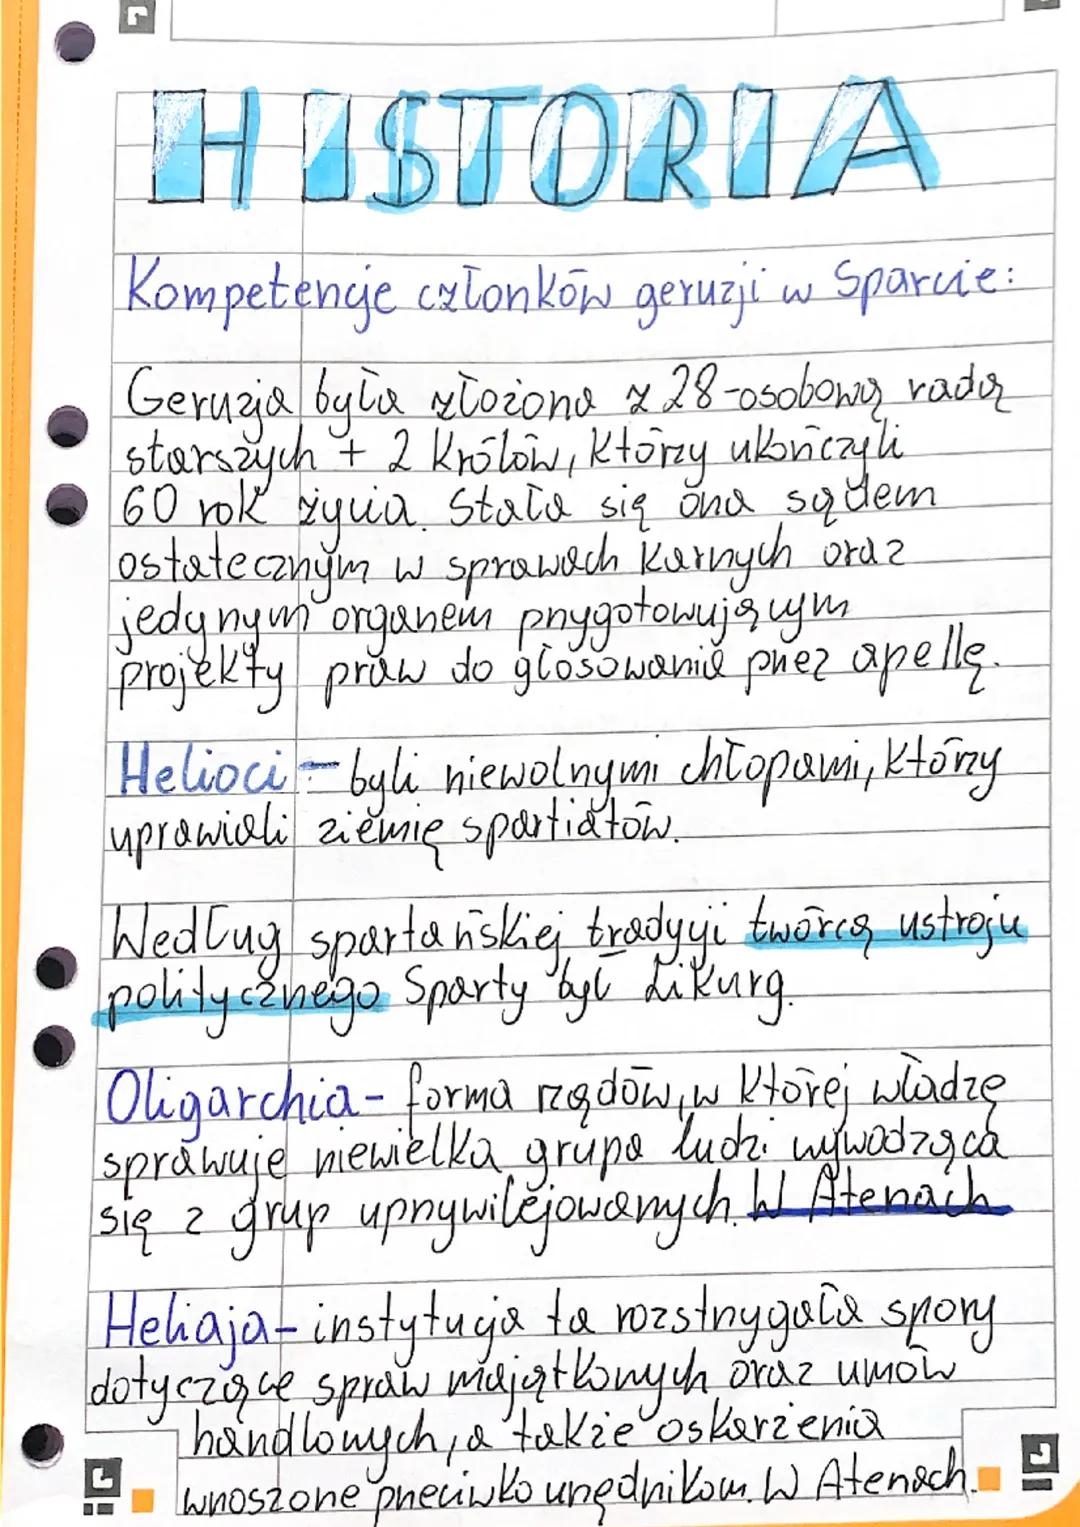 HISTORIA
Kompetencje członków geruzji w Sparcie:
Geruzja była złożona z 28-osobową radą
starszych + 2 królów, którzy ukończyli
60 rok życia. Stała się ona sądem
ostatecznym w sprawach karnych oraz
jedynym organem przygotowującym
projekty praw do głosowania przez apellę.
Helioci - byli niewolnymi chłopami, którzy
uprawiali ziemię spartiatów.
Według spartańskiej tradycji twórcą ustroju
politycznego Sparty był Likurg.
Oligarchia - forma rządów, w której władzę
sprawuje niewielka grupa ludzi wywodząca
się z grup uprzywilejowanych. W Atenach
Heliaja - instytucja ta rozstrzygała spory
dotyczące spraw majątkowych oraz umów
handlowych, a także oskarżenia
wnoszone przeciwko urzędnikom. W Atenach.